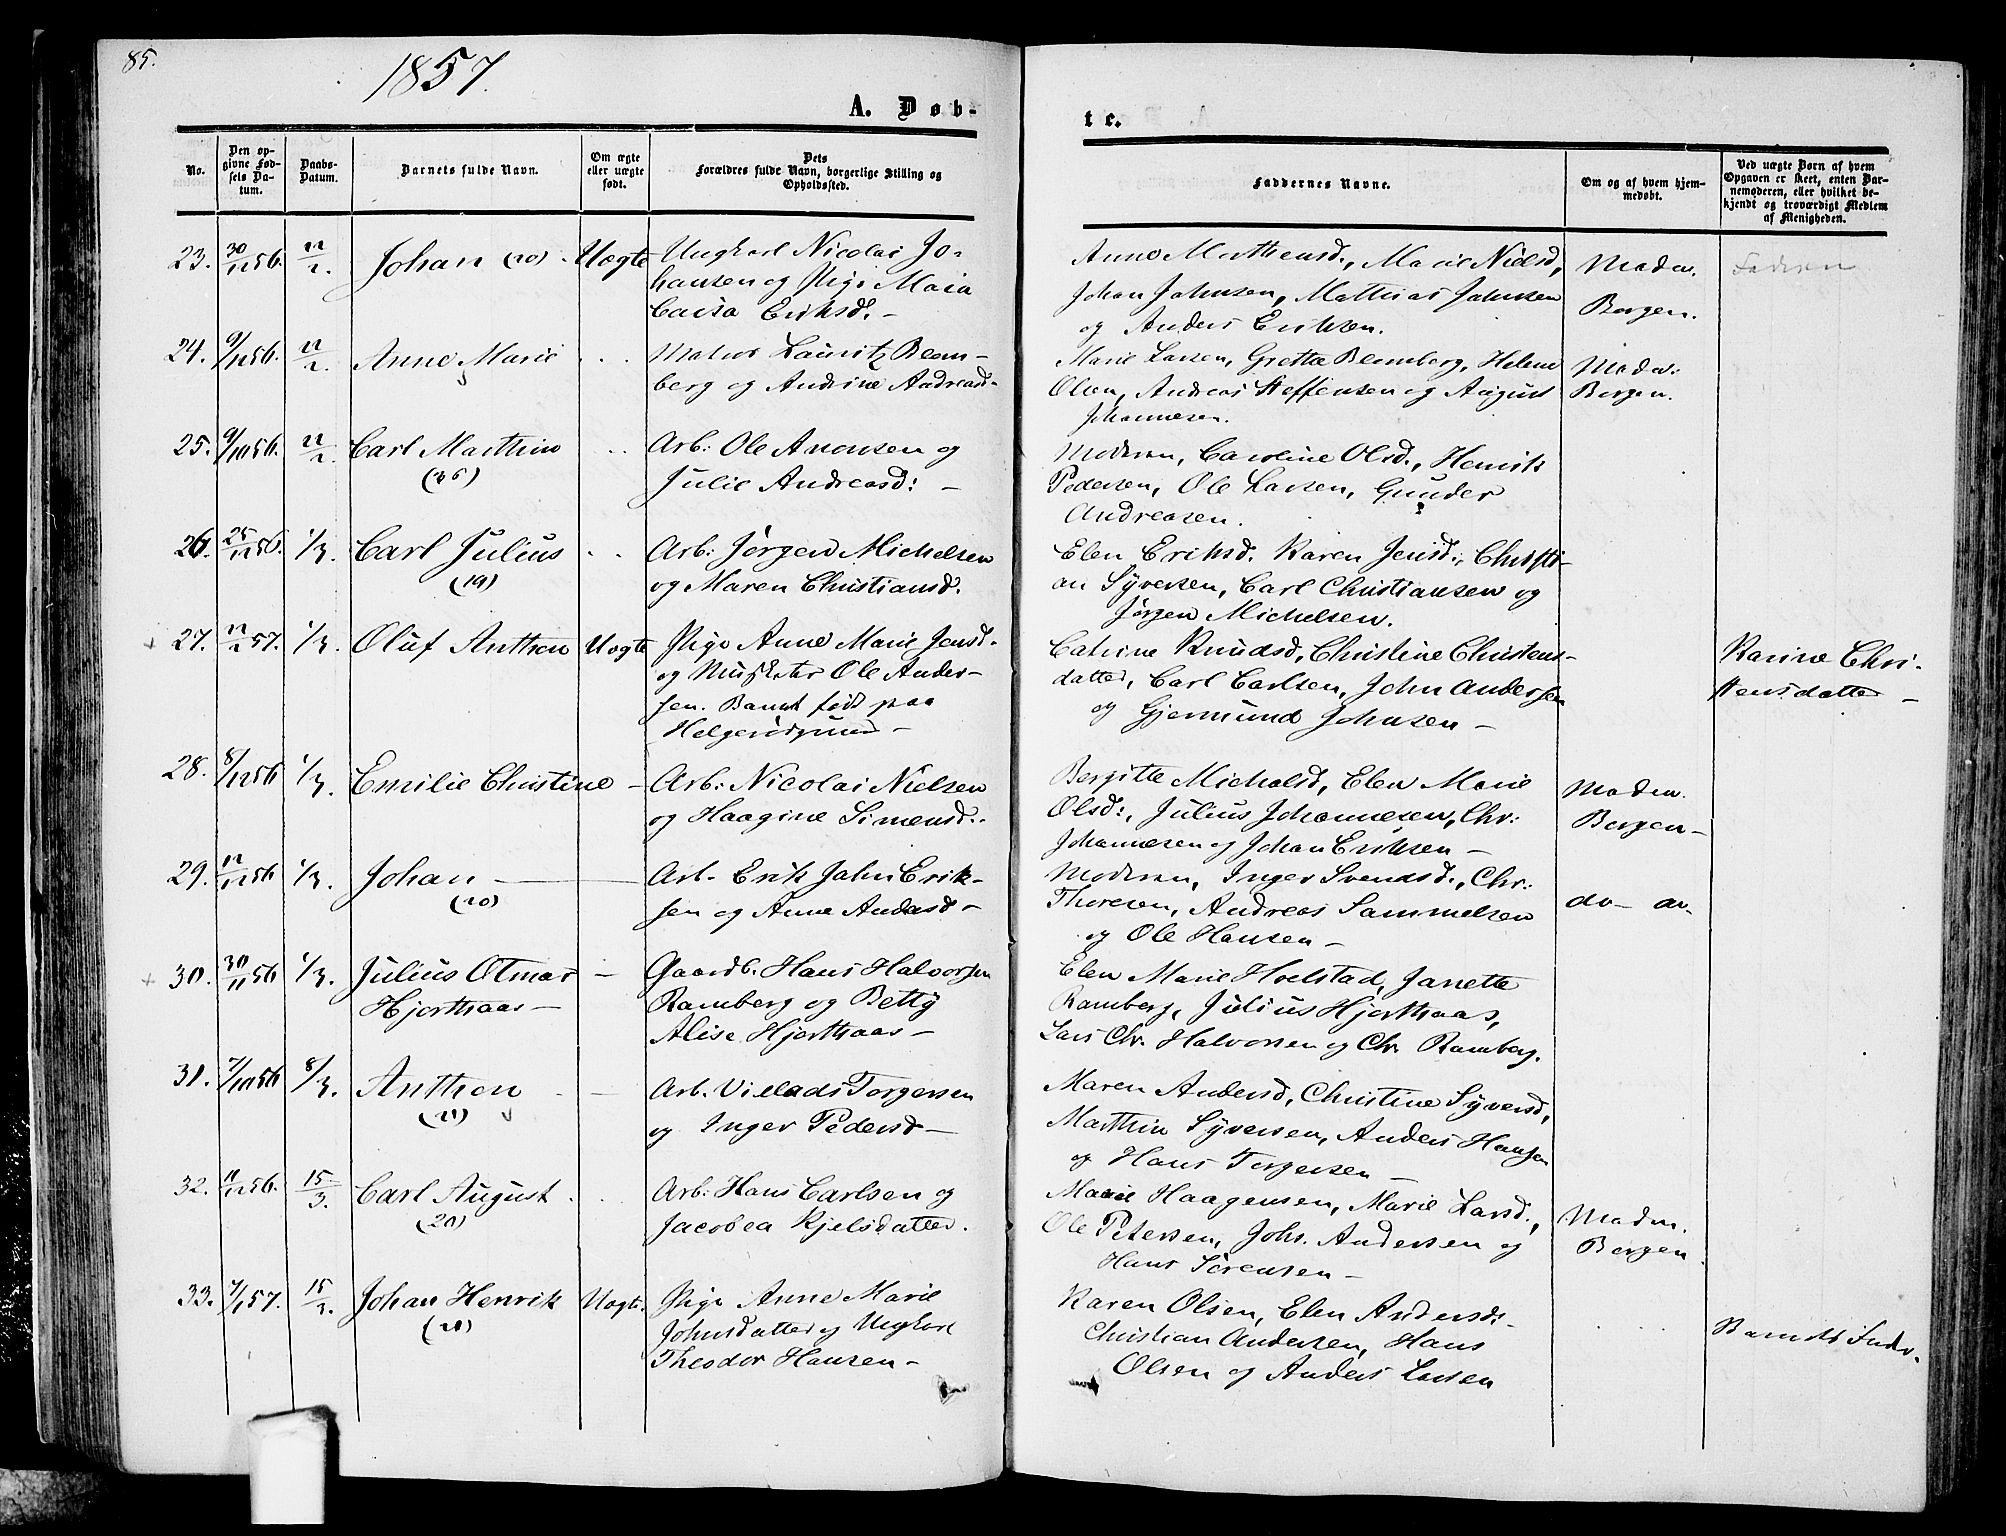 85.
1857.
A. Døb-
te.
No.
Den op-
givne Fød-
sels Da-
tum.
Daabs-
Datum.
Barnets fulde Navn.
Om ægte
eller uægte
født.
Dets
Forældres fulde Navn, borgerlige Stilling og
Opholdssted.
Faddernes Navne.
Om og af hvem hjem-
medøbt.
Ved uægte Børn af hvem
Opgaven er skeet, enten Bar-
nemoderen, eller hvilket be-
kjendt og troværdigt Medlem
af Menigheden.
23. 30/12 56. 22/2. Johan (20) Uægte
Ungkarl Nicolai Jo-
hansen og Pige Maia
Caisa Eriksd. -
Anne Mathensd., Marie Nielsd,
Johan Johnsen, Mathias Johnsen
og Anders Eriksen.
Borgen.
Faderen
24. 9/12 56. 22/2. Anne Marie
Lauritz Blom-
berg og Andrine Andreasd.
Marie Larsen, Gretta Blomberg, Helene
Olsen, Andreas Steffensen og August
Johannesen.
Borgen.
25. 9/10 56. 22/2 Carl Marthin
(26)
Arb: Ole Aronsen og
Julie Andreasd: -
Moderen, Caroline Olsd., Henrik
Pedersen, Ole Larsen, Gunder
Andreasen.
26. 25/12 56. 1/3. Carl Julius
(19)
Arb: Jørgen Michelsen
og Maren Christiansd.
Elen Eriksd. Karen Jensd:, Christi-
an Syversen, Carl Christiansen og
Jørgen Michelsen.
+ 27. 12/2 57. 1/3. Oluf Anthon Uægte
Pige Anne Marie Jensd.
og Musketer Ole Ander-
sen. Barnet født paa
Helgerødgrund -
Catrine Knudsd, Christine Christens-
datter, Carl Carlsen, John Andersen
og Gjermund Johnsen -
Karine Chri-
stensdatter -
28. 8/12 56 1/3. Emilie Christine -
Arb: Nicolai Nielsen
og Haagine Simensd.
Bergitte Michelsd, Elen Marie
Olsd:, Julius Johannesen, Chr:
Johannesen og Johan Eriksen -
Borgen -
29. 12/12 56 1/3. Johan -
(20)
Arb. Erik John Erik-
sen og Anne Andersd -
Moderen, Inger Svendsd., Chr.
Thoresen, Andreas Sammelsen
og Ole Hansen -
do -
+ 30. 30/11 56 1/3. Julius Otmar -
Hjorthaas -
Gaardb. Hans Halvorsen
Ramberg og Betty
Alise Hjorthaas -
Elen Marie Holstad, Janette
Ramberg, Julius Hjorthaas,
Lars Chr. Halvorsen og Chr. Ramberg.
31. 7/10 56 8/3. Anthon -
(21)
Arb. Villads Torgersen
og Inger Pedersd -
Maren Andersd, Christine Syversd,
Marthin Syversen, Anders Hansen
og Hans Torgersen -
32. 11/12 56. 15/3. Carl August
(20)
Arb: Hans Carlsen og
Jacobea Kjelsdatter.
Marie Haagensen, Marie Larsd.,
Ole Petersen, Johs. Andersen og
Hans Sørensen -
Borgen
33. 7/1 57. 15/3. Johan Henrik Uægte.
(20)
Pige Anne Marie
Johnsdatter og Ungkarl
Theodor Hansen -
Karen Olsen, Elen Andersd:
Christian Andersen, Hans
Olsen og Anders Larsen
Barnets Fader.